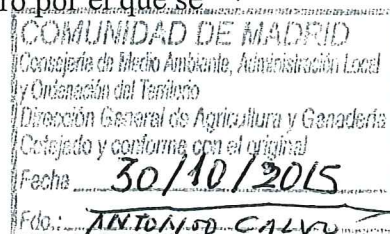 ro por el que se
COMUNIDAD DE MADRID
Consejería de Medio Ambiente, Administración Local
y Ordenación del Territorio
Dirección General de Agricultura y Ganadería
Cotejado y conforme con el original
Fecha 30/10/2015
Fdo.: ANTONIO CALVO